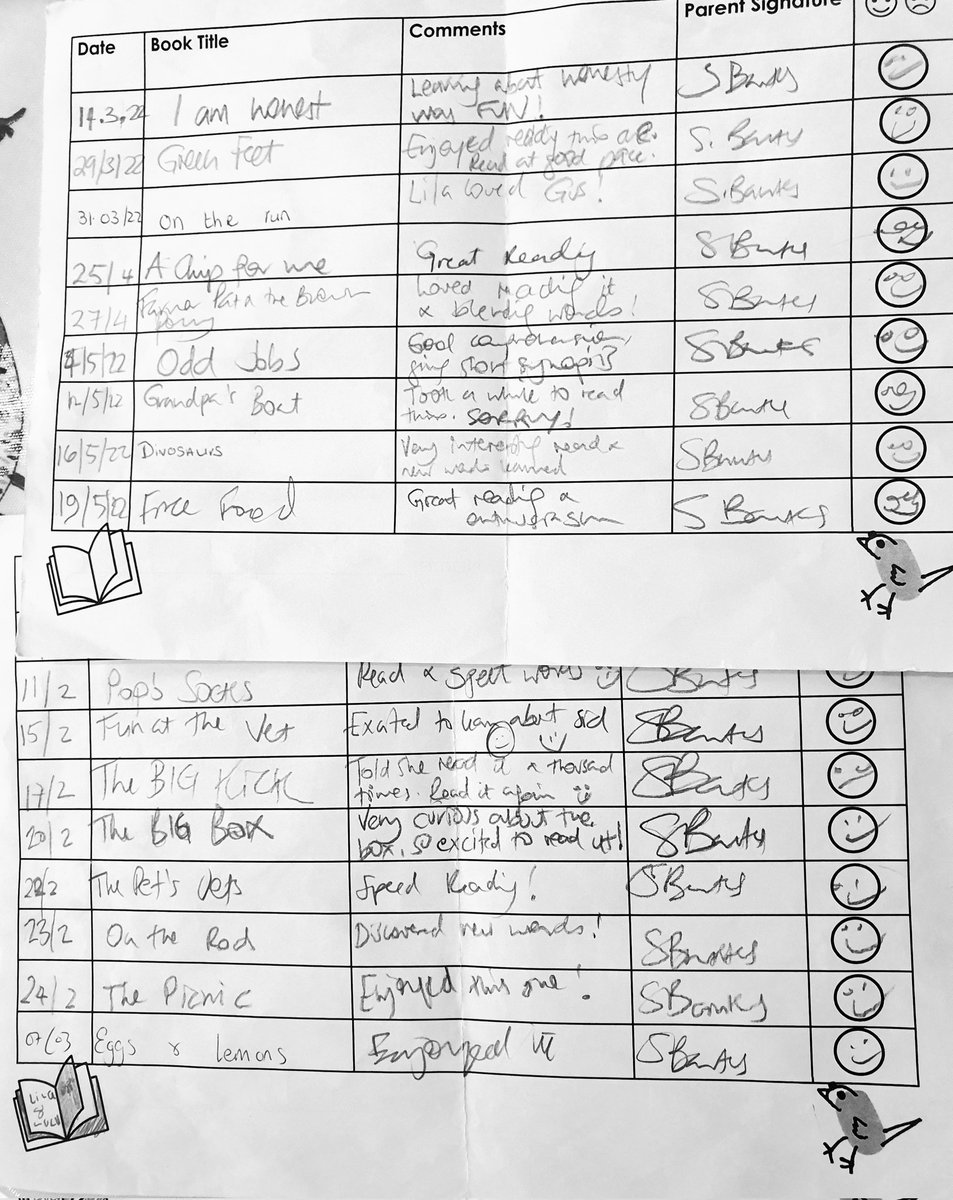 Date Book Title Comments Parent Signature
14.3.22 I am honest Learning about honesty
was FUN! S Banks
29/3/22 Green Feet Enjoyed ready this one.
Read at good pace. S. Banks
31.03/22 on the run Lila loved Gus! S.Banks
25/4 A Chip for me Great Reading S Banks
27/4 Pat a the Brown
pony Loved reading it
& blending words! S Banks
4/5/22 Odd Jobs Good comprehension,
giving short synopsis S Banks
12/5/22 Grandpa's Boat Took a while to read
this. sorry! S Banks
16/5/22 DINOSAURS Very interesting read &
new words learned S Banks
19/5/22 Free Food Great reading &
S Banks
11/2 Pop's Socks Read & spelt words S Banks
15/2 Fun at the Vet Exited to learn about sid S Banks
17/2 The BIG KICK Told she read it a thousand
times. Read it again S Banks
20/2 The BIG BOX Very curious about the
box, so excited to read it! S Banks
22/2 The Pet's Vets Speed Reading! S Banks
23/2 On the Rod Discovered new words! S Banks
24/2 The Picnic Enjoyed this one! S Banks
07/03 Eggs & lemons Enjoyed it S Banks
Lila
&